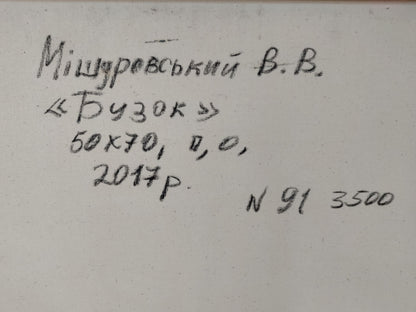 Мішуровський В.В.
«Бузок»
50х70, п, о,
2017р.
N 91 3500